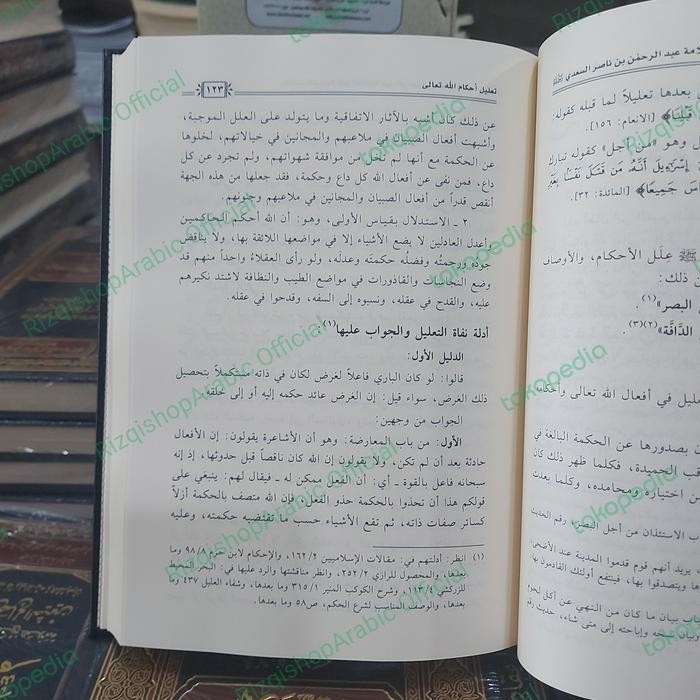 تعليل أحكام الله تعالى
١٢٣
عن ذلك كان أشبه بالآثار الاتفاقية وما يتولد على العلل الموجبة،
وأشبهت أفعال الصبيان في ملاعبهم والمجانين في خيالاتهم، لخلوها
عن الحكمة مع أنها لم تخل من موافقة شهواتهم، ولم تجرد عن كل
داع، فمن نفى عن أفعال الله كل داع وحكمة، فقد جعلها من هذه الجهة
أنقص قدراً من أفعال الصبيان والمجانين في ملاعبهم وجنونهم.
٢ ـ الاستدلال بقياس الأولى، وهو: أن الله أحكم الحاكمين
وأعدل العادلين لا يضع الأشياء إلا في مواضعها اللائقة بها، ولا يناقض
جودُه ورحمتُه وفضلُه حكمتَه وعدلَه، ولو رأى العقلاء واحداً منهم قد
وضع النجاسات والقاذورات في مواضع الطيب والنظافة لاشتد نكيرهم
عليه، والقدح في عقله، ونسبوه إلى السفه، وقدحوا في عقله.
أدلة نفاة التعليل والجواب عليها(١):
الدليل الأول:
قالوا: لو كان الباري فاعلاً لغرض لكان في ذاته مستكملاً بتحصيل
ذلك الغرض، سواء قيل: إن الغرض عائد حكمه إليه أو إلى خلقه.
الجواب من وجهين:
الأول: من باب المعارضة: وهو أن الأشاعرة يقولون: إن الأفعال
حادثة بعد أن لم تكن، ولا يقولون إن الله كان ناقصاً قبل حدوثها، إذ إنه
سبحانه فاعل بالقوة ـ أي: أن الفعل ممكن له ـ فيقال لهم: ينبغي على
قولكم هذا أن تحذوا بالحكمة حذو الفعل، فإن الله متصف بالحكمة أزلاً
كسائر صفات ذاته، ثم تقع الأشياء حسب ما تقتضيه حكمته، وعليه
(١) انظر: أدلتهم في: مقالات الإسلاميين ١٦٢/٢، والإحكام لابن حزم ٩٨/٨ وما
بعدها، والمحصول للرازي ٢٥٢/٢، وانظر مناقشتها والرد عليها في: البحر المحيط
للزركشي ١١٣/٤، وشرح الكوكب المنير ٣١٥/١ وما بعدها، وشفاء العليل ٤٣٧ وما
بعدها، والوصف المناسب لشرع الحكم، ص٥٨ وما بعدها.
لامة عبد الرحمٰن بن ناصر السعدي
بعدها تعليلاً لما قبله كقوله:
[الأنعام: ١٥٦].
وهو «من أجل» كقوله تبارك
إِسْرَٰٓءِيلَ أَنَّهُۥ مَن قَتَلَ نَفْسًۢا بِغَيْرِ
جَمِيعًا﴾ [المائدة: ٣٢].
ﷺ علل الأحكام، والأوصاف
ذلك:
البصر»(١).
الدَّافَّة»(٢)(٣).
في أفعال الله تعالى وأحكامه
بصدورها عن الحكمة البالغة في
الحميدة، فكلما ظهر ذلك كان
اختياره ومحامده، وكلما بعدت
الاستئذان من أجل البصر، رقم الحديث
يريد أنهم قوم قدموا المدينة عند الأضحى،
ويتصدقوا بها، فينتفع أولئك القادمون بها
بيان ما كان من النهي عن أكل لحوم
وبيان نسخه وإباحته إلى متى شاء، حديث رقم
RizqishopArabic Official
tokopedia